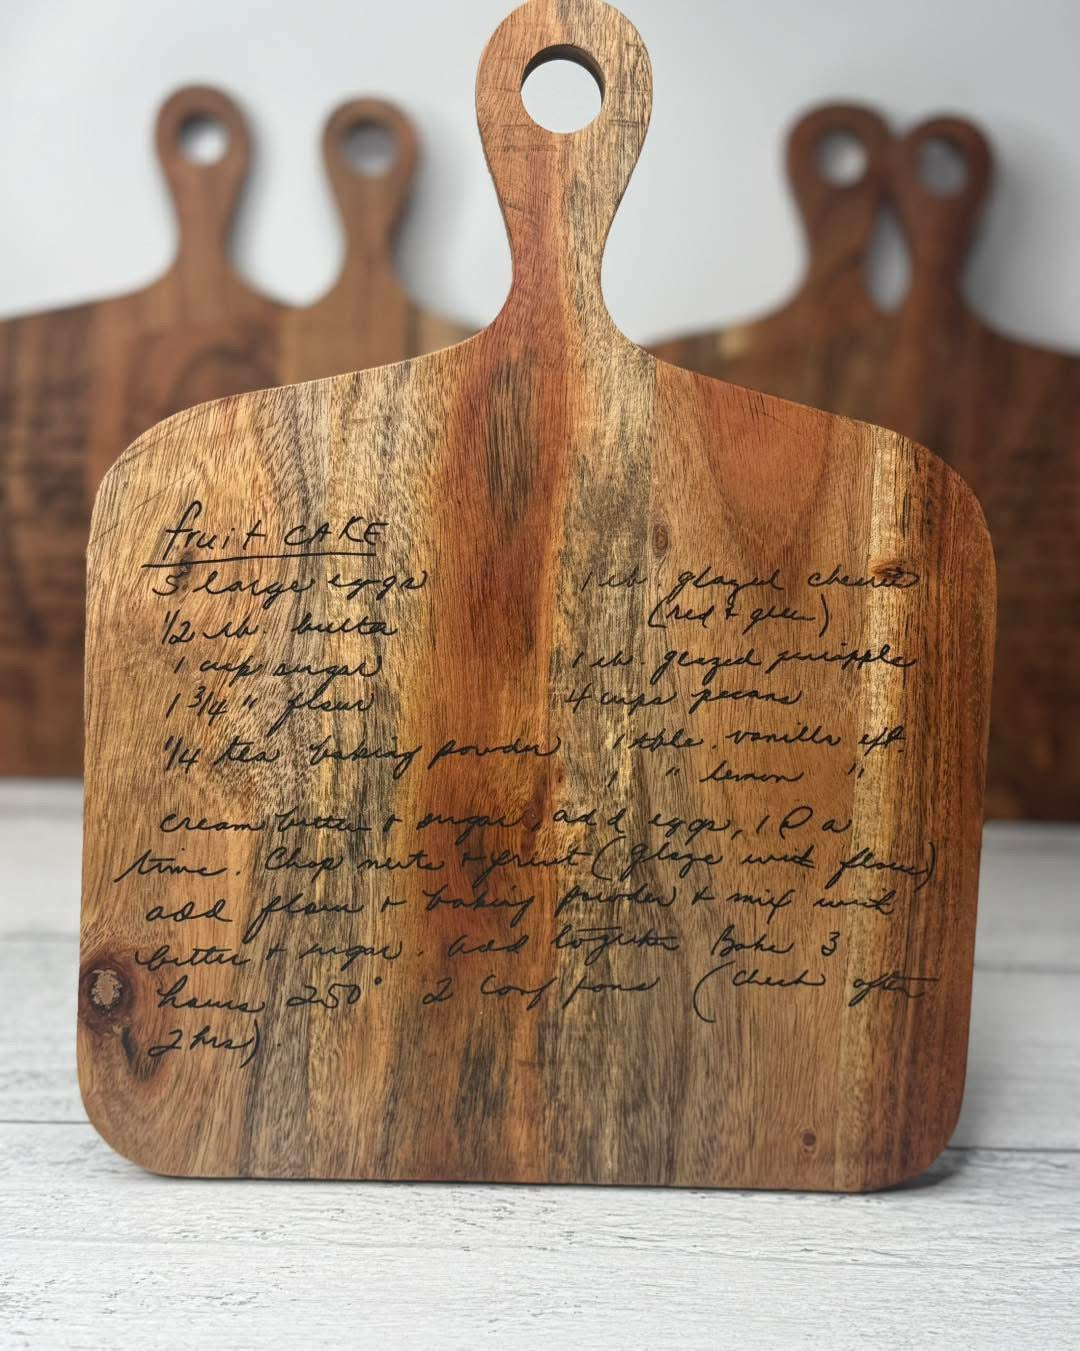 fruit CAKE
5 large eggs
1/2 lb. butter
1 cup sugar
1 3/4 " flour
1/4 tea baking powder
1 lb. glazed cherries
(red + green)
1 lb. glazed pineapple
4 cups pecans
1 tble. vanilla ext.
1 " lemon "
cream butter + sugar, add eggs, 1 @ a
time. Chop nuts + fruit (glaze with flour)
add flour + baking powder + mix with
butter + sugar. add together Bake 3
hours 250° 2 loaf pans (check after
2 hrs).